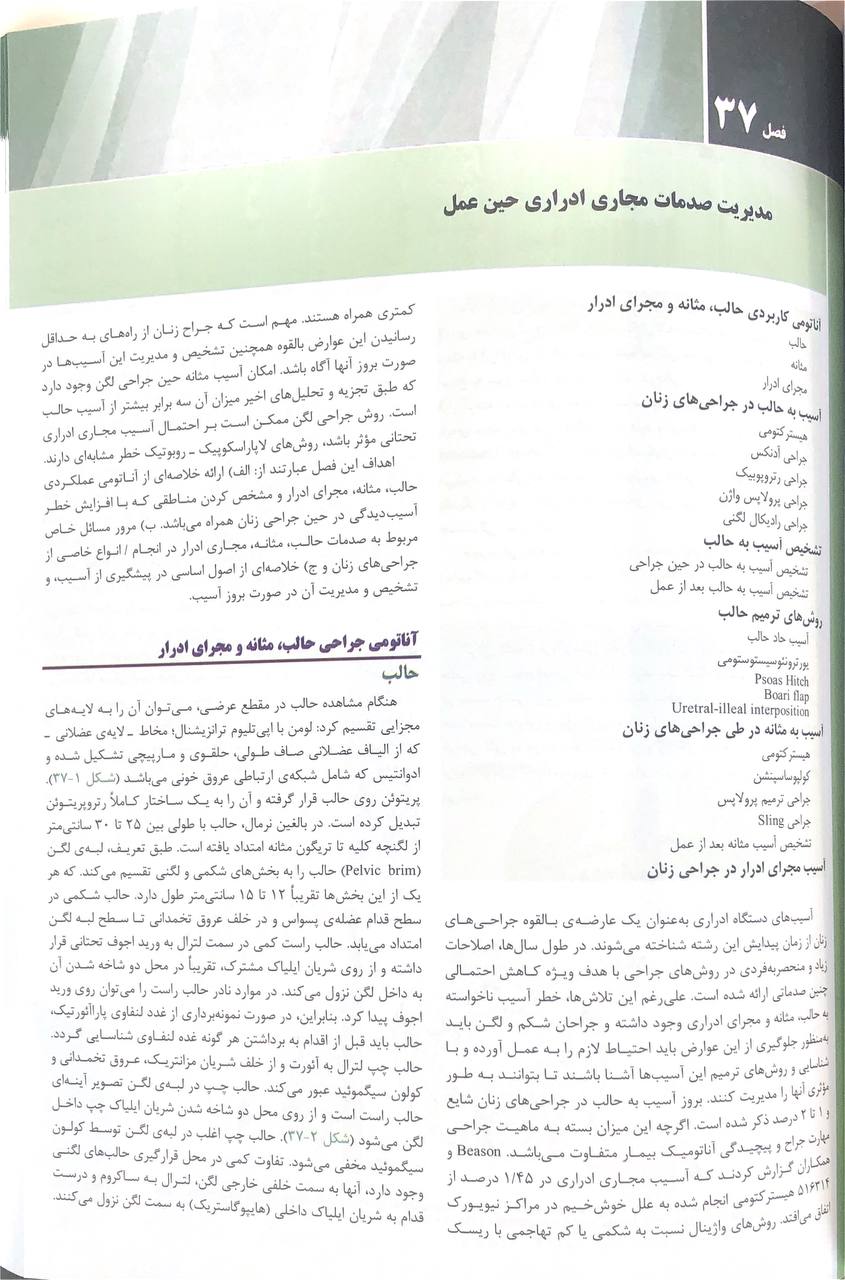 فصل ۳۷
مدیریت صدمات مجاری ادراری حین عمل
آناتومی کاربردی حالب، مثانه و مجرای ادرار
حالب
مثانه
مجرای ادرار
آسیب به حالب در جراحی‌های زنان
هیسترکتومی
جراحی آدنکس
جراحی رتروپوبیک
جراحی پرولاپس واژن
جراحی رادیکال لگنی
تشخیص آسیب به حالب
تشخیص آسیب به حالب در حین جراحی
تشخیص آسیب به حالب بعد از عمل
روش‌های ترمیم حالب
آسیب حاد حالب
یورترونئوسیستوستومی
Psoas Hitch
Boari flap
Uretral-illeal interposition
آسیب به مثانه در طی جراحی‌های زنان
هیسترکتومی
کولپوساسپنشن
جراحی ترمیم پرولاپس
جراحی Sling
تشخیص آسیب مثانه بعد از عمل
آسیب مجرای ادرار در جراحی زنان
آسیب‌های دستگاه ادراری به‌عنوان یک عارضه‌ی بالقوه جراحی‌های
زنان از زمان پیدایش این رشته شناخته می‌شوند. در طول سال‌ها، اصلاحات
زیاد و منحصربه‌فردی در روش‌های جراحی با هدف ویژه کاهش احتمالی
چنین صدماتی ارائه شده است. علی‌رغم این تلاش‌ها، خطر آسیب ناخواسته
به حالب، مثانه و مجرای ادراری وجود داشته و جراحان شکم و لگن باید
به‌منظور جلوگیری از این عوارض باید احتیاط لازم را به عمل آورده و با
شناسایی و روش‌های ترمیم این آسیب‌ها آشنا باشند تا بتوانند به طور
مؤثری آنها را مدیریت کنند. بروز آسیب به حالب در جراحی‌های زنان شایع
و ۱ تا ۲ درصد ذکر شده است. اگرچه این میزان بسته به ماهیت جراحی
مهارت جراح و پیچیدگی آناتومیک بیمار متفاوت می‌باشد. Beason و
همکاران گزارش کردند که آسیب مجاری ادراری در ۱/۴۵ درصد از
۵۱۶۳۱۴ هیسترکتومی انجام شده به علل خوش‌خیم در مراکز نیویورک
اتفاق می‌افتد. روش‌های واژینال نسبت به شکمی یا کم تهاجمی با ریسک
کمتری همراه هستند. مهم است که جراح زنان از راه‌های به حداقل
رسانیدن این عوارض بالقوه همچنین تشخیص و مدیریت این آسیب‌ها در
صورت بروز آنها آگاه باشد. امکان آسیب مثانه حین جراحی لگن وجود دارد
که طبق تجزیه و تحلیل‌های اخیر میزان آن سه برابر بیشتر از آسیب حالب
است. روش جراحی لگن ممکن است بر احتمال آسیب مجاری ادراری
تحتانی مؤثر باشد، روش‌های لاپاراسکوپیک ـ روبوتیک خطر مشابه‌ای دارند.
اهداف این فصل عبارتند از: الف) ارائه خلاصه‌ای از آناتومی عملکردی
حالب، مثانه، مجرای ادرار و مشخص کردن مناطقی که با افزایش خطر
آسیب‌دیدگی در حین جراحی زنان همراه می‌باشد. ب) مرور مسائل خاص
مربوط به صدمات حالب، مثانه، مجاری ادرار در انجام / انواع خاصی از
جراحی‌های زنان و ج) خلاصه‌ای از اصول اساسی در پیشگیری از آسیب، و
تشخیص و مدیریت آن در صورت بروز آسیب.
آناتومی جراحی حالب، مثانه و مجرای ادرار
حالب
هنگام مشاهده حالب در مقطع عرضی، می‌توان آن را به لایه‌های
مجزایی تقسیم کرد: لومن با اپی‌تلیوم ترانزیشنال؛ مخاط ـ لایه‌ی عضلانی ـ
که از الیاف عضلانی صاف طولی، حلقوی و مارپیچی تشکیل شده و
ادوانتیس که شامل شبکه‌ی ارتباطی عروق خونی می‌باشد (شکل ۱-۳۷).
پریتوئن روی حالب قرار گرفته و آن را به یک ساختار کاملاً رتروپریتوئن
تبدیل کرده است. در بالغین نرمال، حالب با طولی بین ۲۵ تا ۳۰ سانتی‌متر
از لگنچه کلیه تا تریگون مثانه امتداد یافته است. طبق تعریف، لبه‌ی لگن
(Pelvic brim) حالب را به بخش‌های شکمی و لگنی تقسیم می‌کند. که هر
یک از این بخش‌ها تقریباً ۱۲ تا ۱۵ سانتی‌متر طول دارد. حالب شکمی در
سطح قدام عضله‌ی پسواس و در خلف عروق تخمدانی تا سطح لبه لگن
امتداد می‌یابد. حالب راست کمی در سمت لترال به ورید اجوف تحتانی قرار
داشته و از روی شریان ایلیاک مشترک، تقریباً در محل دو شاخه شدن آن
به داخل لگن نزول می‌کند. در موارد نادر حالب راست را می‌توان روی ورید
اجوف پیدا کرد. بنابراین، در صورت نمونه‌برداری از غدد لنفاوی پاراآئورتیک،
حالب باید قبل از اقدام به برداشتن هر گونه غده لنفاوی شناسایی گردد.
حالب چپ لترال به آئورت و از خلف شریان مزانتریک، عروق تخمدانی و
کولون سیگموئید عبور می‌کند. حالب چپ در لبه‌ی لگن تصویر آینه‌ای
حالب راست است و از روی محل دو شاخه شدن شریان ایلیاک چپ داخل
لگن می‌شود (شکل ۲-۳۷). حالب چپ اغلب در لبه‌ی لگن توسط کولون
سیگموئید مخفی می‌شود. تفاوت کمی در محل قرارگیری حالب‌های لگنی
وجود دارد، آنها به سمت خلفی خارجی لگن، لترال به ساکروم و درست
قدام به شریان ایلیاک داخلی (هایپوگاستریک) به سمت لگن نزول می‌کنند.